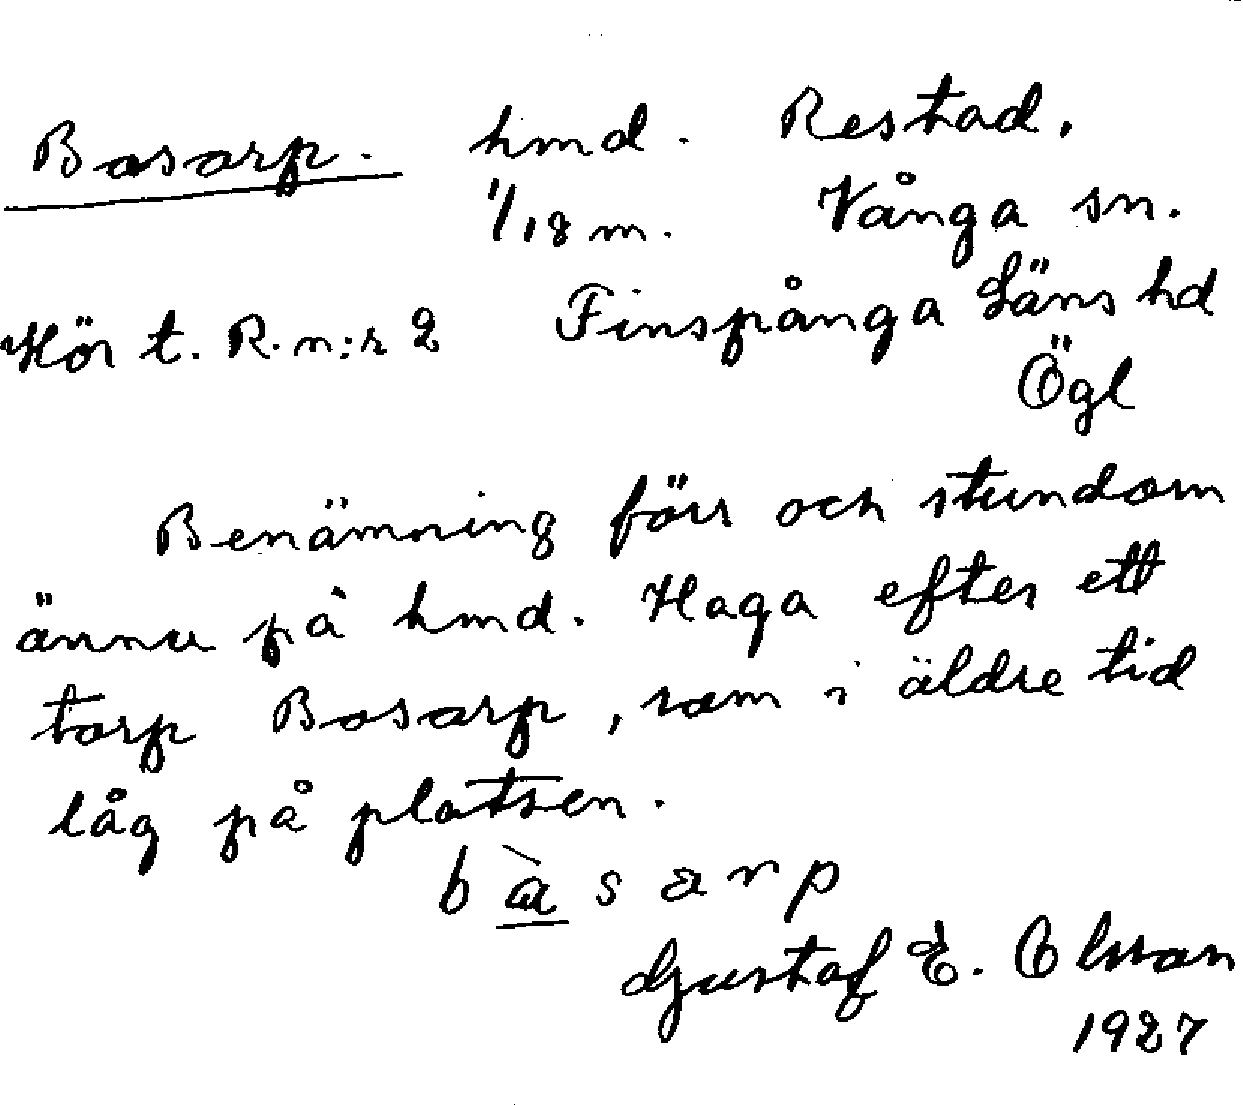 Basarp. hmd. Restad.
1/18 m. Vånga sn.
Hör t. R. n:r 2 Finspånga Läns hd
Ögl
Benämning förr och stundom
ännu på hmd. Haga efter ett
torp Basarp, som i äldre tid
låg på platsen.
b à s a r p
Gustaf E. Olsson
1927